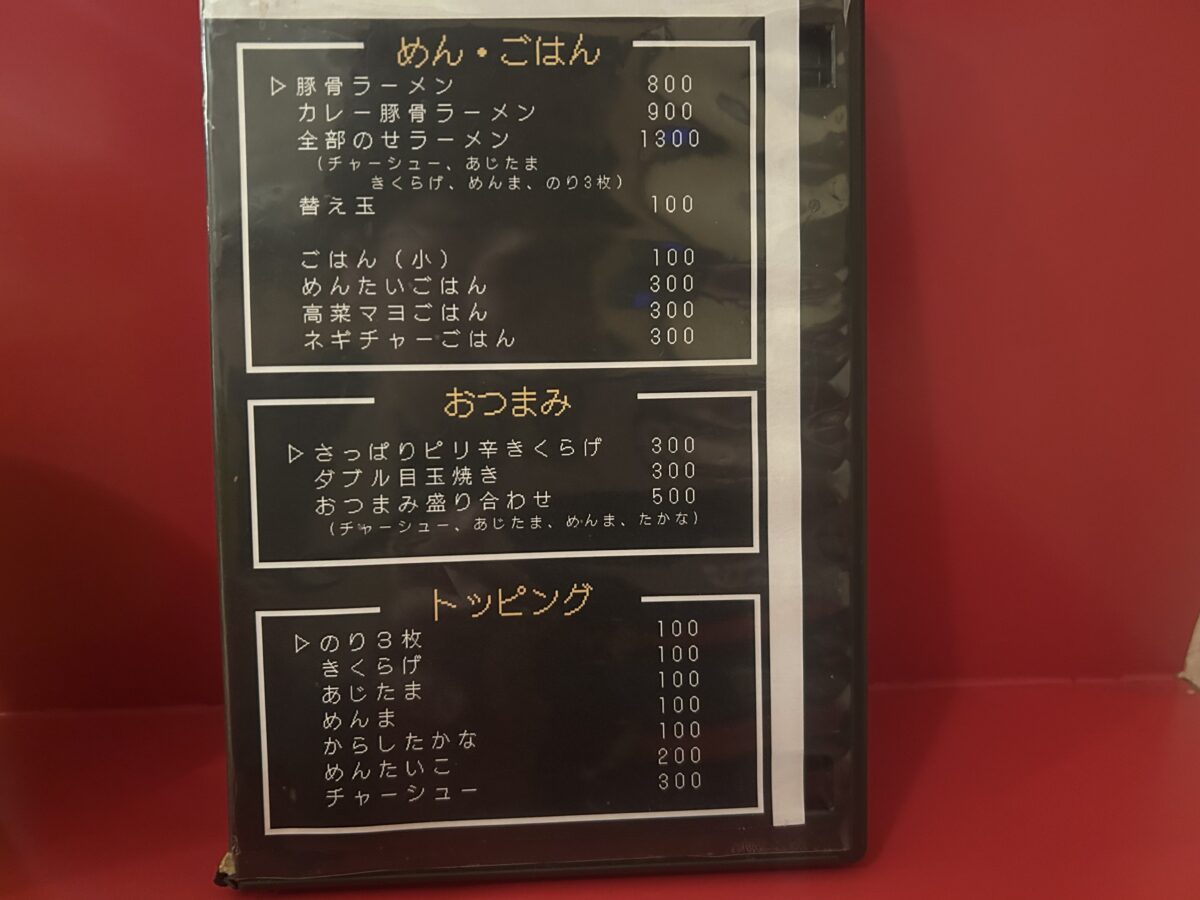 めん・ごはん
▷豚骨ラーメン 800
カレー豚骨ラーメン 900
全部のせラーメン 1300
（チャーシュー、あじたま
きくらげ、めんま、のり3枚）
替え玉 100
ごはん（小） 100
めんたいごはん 300
高菜マヨごはん 300
ネギチャーごはん 300
おつまみ
▷さっぱりピリ辛きくらげ 300
ダブル目玉焼き 300
おつまみ盛り合わせ 500
（チャーシュー、あじたま、めんま、たかな）
トッピング
▷のり３枚 100
きくらげ 100
あじたま 100
めんま 100
からしたかな 100
めんたいこ 200
チャーシュー 300